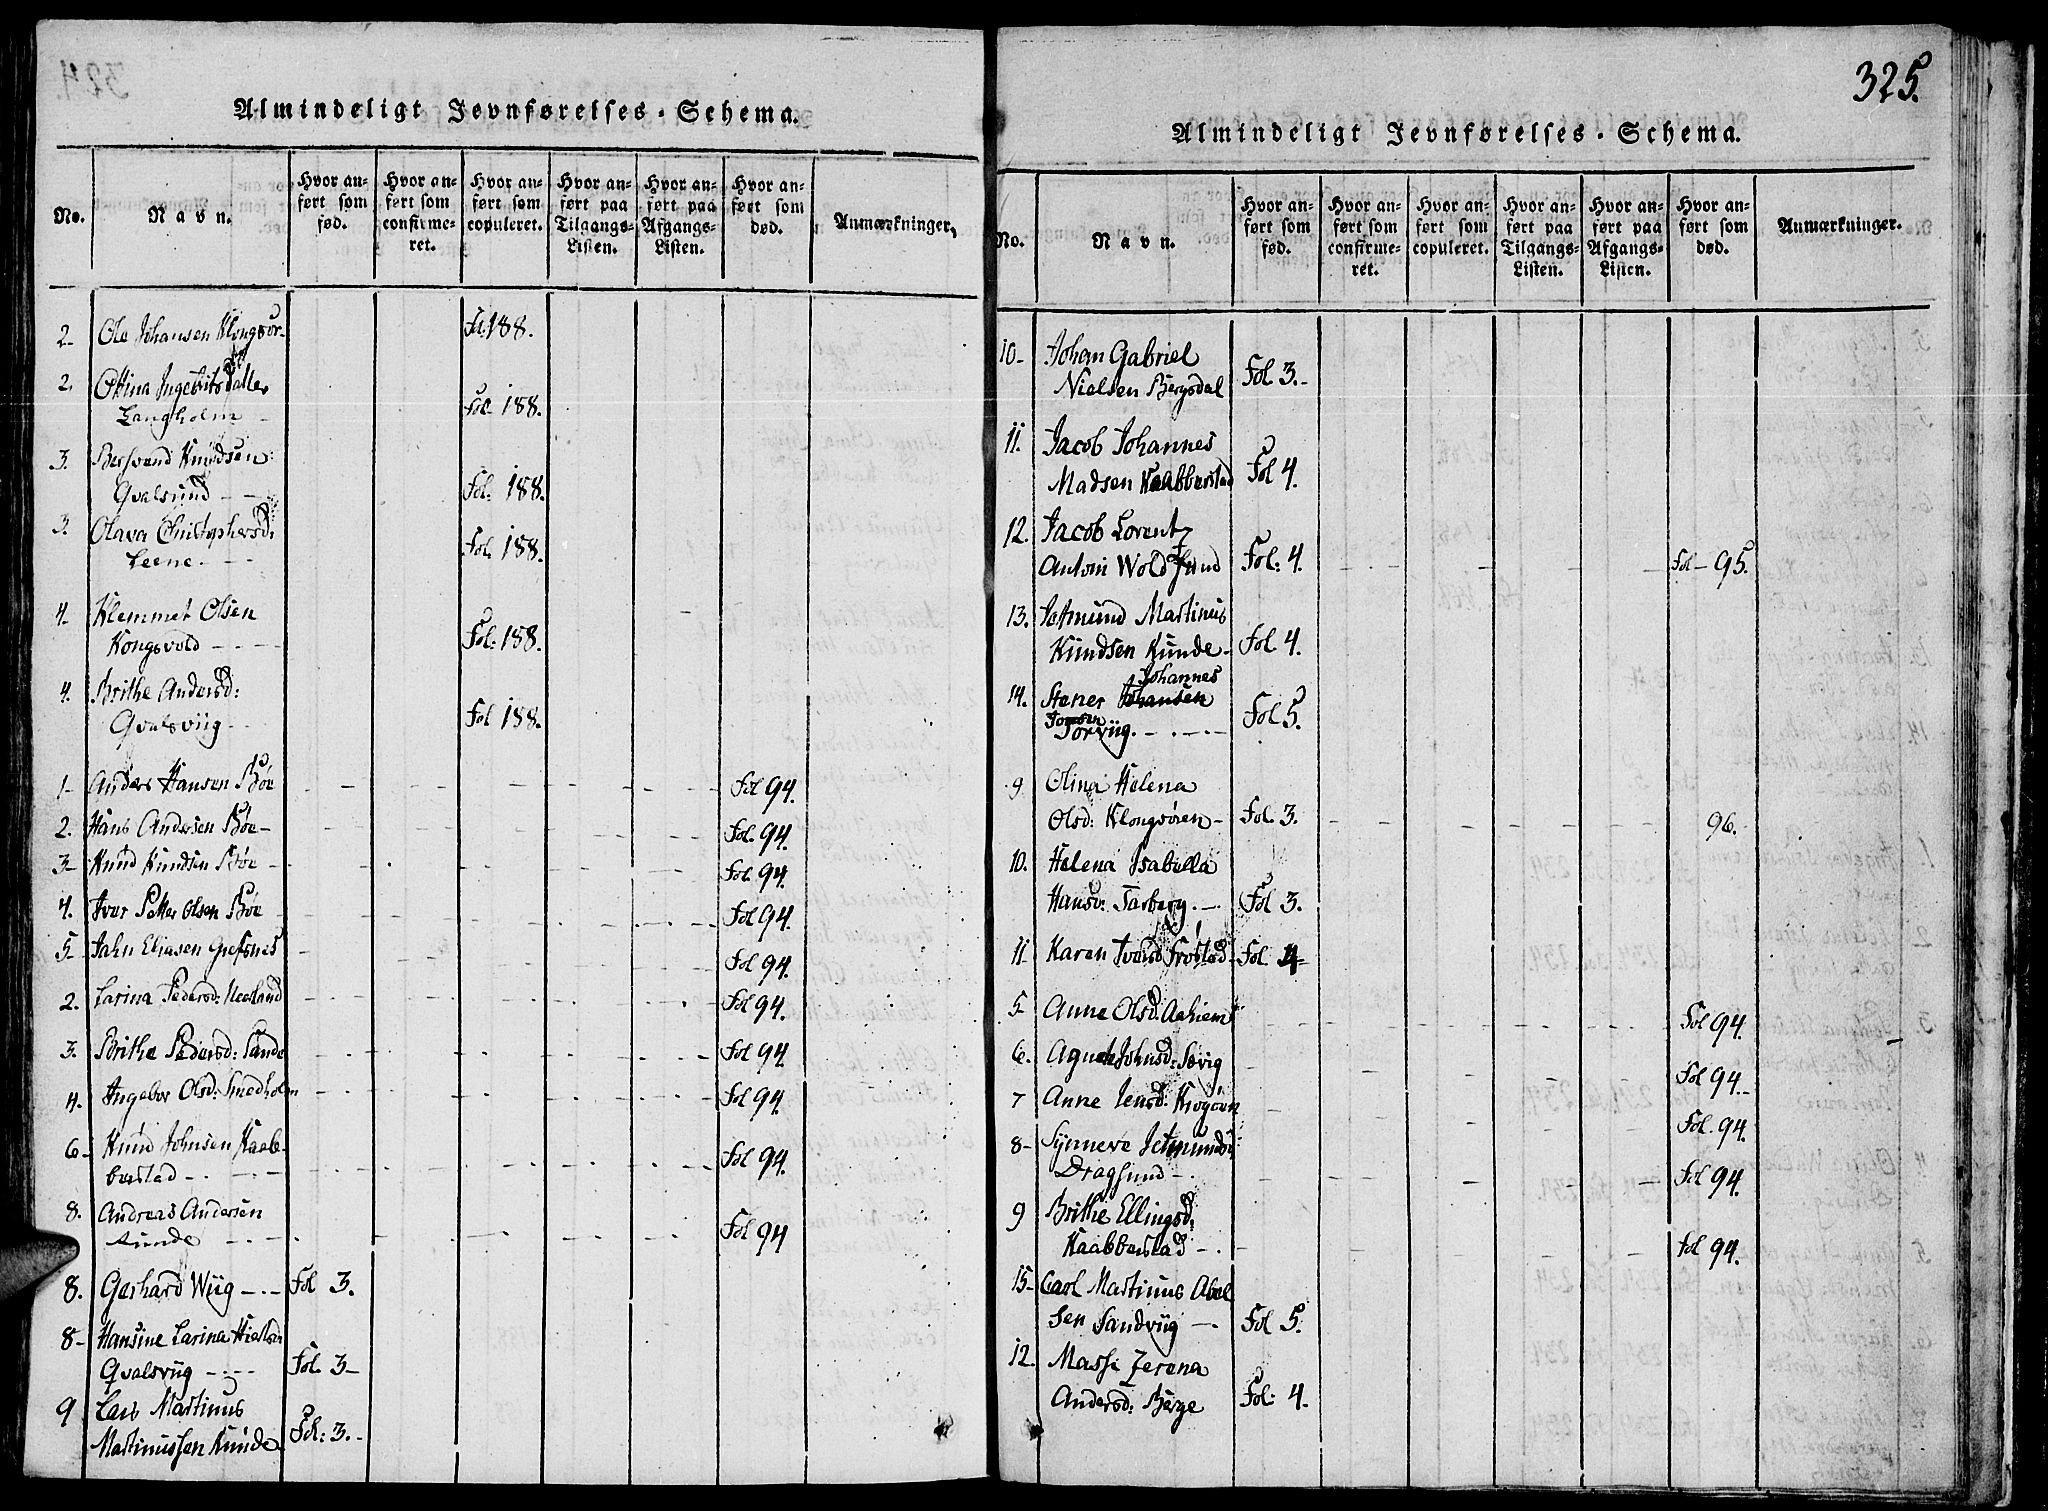 Almindeligt Jevnførelses-Schema.
No.
Navn.
Hvor anført som fød.
Hvor anført som confirmeret.
Hvor anført som copuleret.
Hvor anført paa Tilgangs-Listen.
Hvor anført paa Afgangs-Listen.
Hvor anført som død.
Anmærkninger.
2- Ole Johansen Klongsør- Fol. 188.
2. Oltina Ingebrits Datter
Langholm - Fol. 188.
3. Bersvend Knudsen
Qvalsund - - Fol: 188.
3. Olava Christophersd:
Leene. - - Fol. 188.
4- Klemmet Olsen
Kongsvold - - - Fol: 188.
4. Brithe Andersd:
Qvalsviig - - Fol 188.
1- Anders Hansen Bøe Fol 94.
2. Hans Andersen Bøe- Fol. 94.
3- Knud Knudsen Bøe - Fol. 94.
4. Iver Petter Olsen Bøe Fol 94.
5- Jahn Eliasen Gjersnes Fol 94.
2. Larina Pedersd: Nerland Fol 94.
3. Brithe Pedersd: Sande Fol 94.
4. Ingebor Olsd: Smedholm Fol 94.
6- Knud Johnsen Kaab-
berstad - - Fol 94.
8. Andreas Andersen
Runde - - - Fol 94
8. Gerhard Wiig - - - Fol 3.
8- Hansine Larina
Qvalsviig - - - Fol. 3-
9 Lars Martinus
Martinussen Runde Fol: 3.-
325.
Almindeligt Jevnførelses-Schema.
No.
Navn.
Hvor anført som fød.
Hvor anført som confirmeret.
Hvor anført som copuleret.
Hvor anført paa Tilgangs-Listen.
Hvor anført paa Afgangs-Listen.
Hvor anført som død.
Anmærkninger.
10- Johan Gabriel
Nielsen Bergsdal Fol 3.-
11. Jacob Johannes
Madsen Kaabberstad Fol 4.
12. Jacob Lorentz
Antoni Wold Fol: 4. Fol- 95.
13. Jetmund Martinus
Knudsen Runde- Fol 4.
Johannes
14. Stener Johansen
Jonsen
Torviig. - - - Fol 5.
9 Olina Helena
Olsd: Klongsøren- Fol. 3. 96.
10. Helena Isabella
Hansd: Tarberg. - Fol 3.
11 Karen Iversd Frøstad Fol. 4-
5- Anne Olsd: Aahiem Fol 94.
6. Agneth Johnsd: Sævig Fol 94.-
7 Anne Jensd: Krogøen Fol. 94.
8- Synneve Jetmundsd
Dragsund - Fol 94.
9 Brithe Ellingsd,
Kaabberstad - - Fol 94.
15- Carl Martinus Abel
sen Sandviig - Fol 5.
12. Massi Serena
Andersd: Berge Fol: 4.